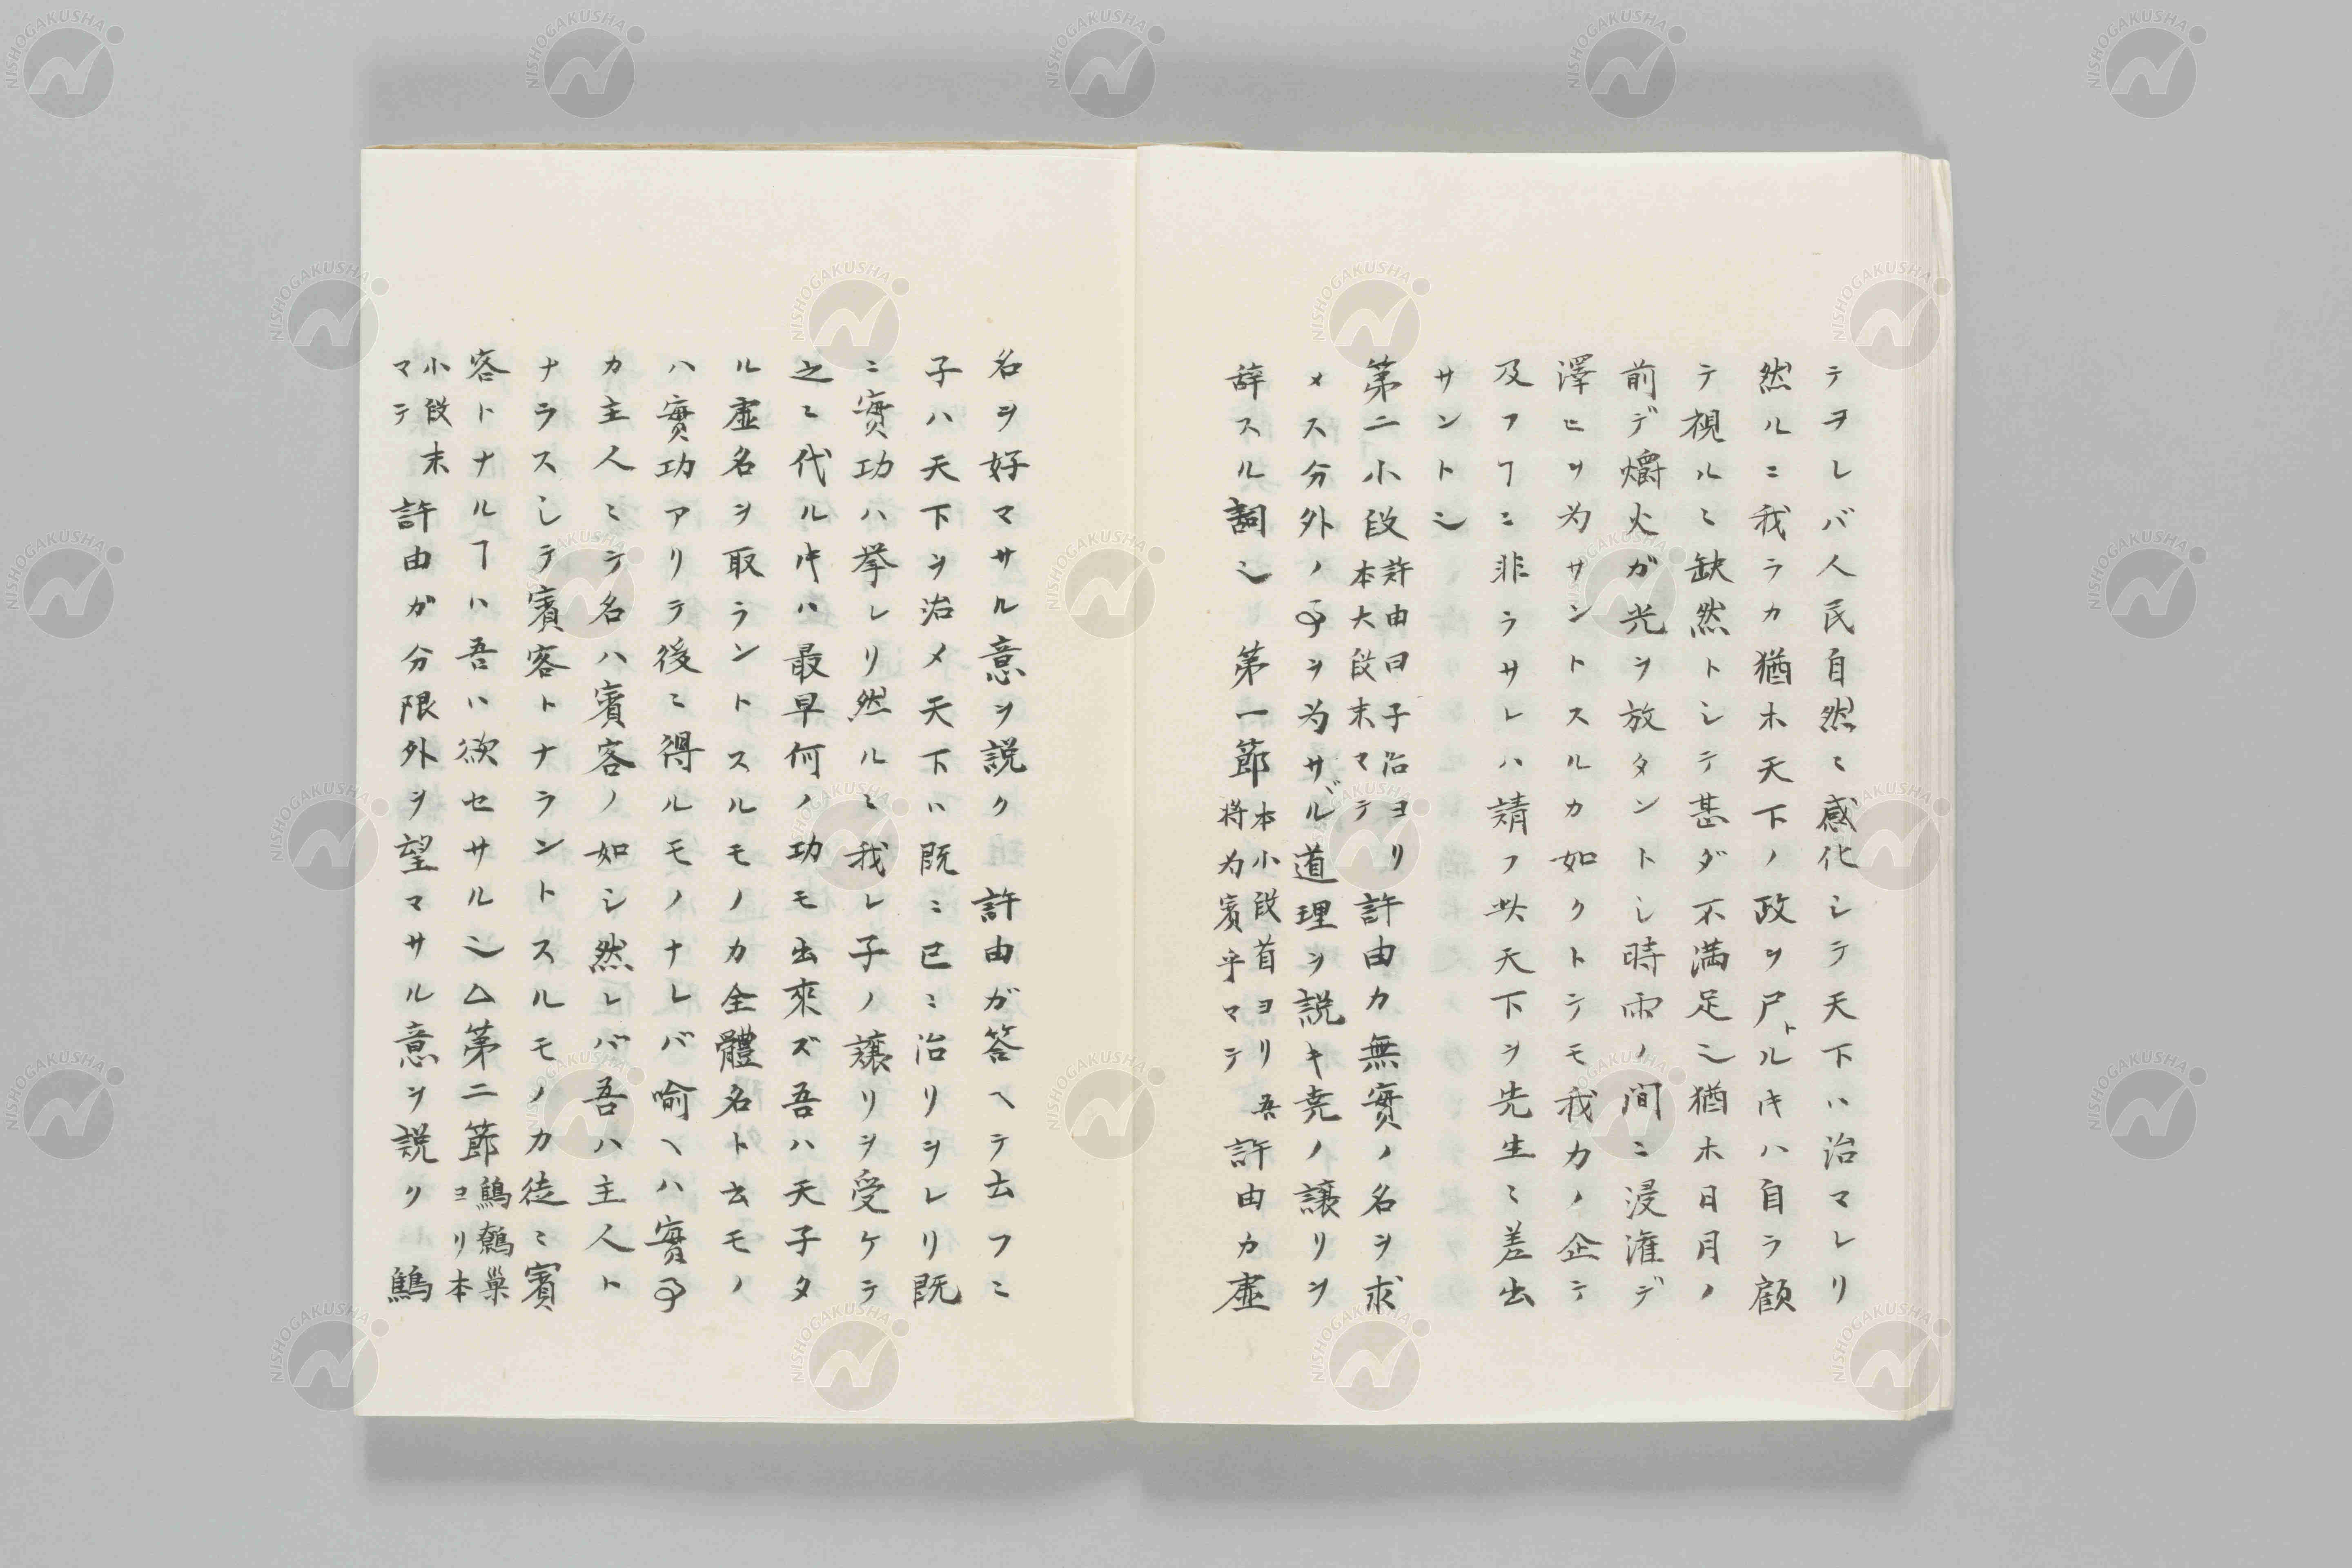 テヲレバ人民自然ミ感化シテ天下ハ治マレリ
然ルニ我ラカ猶ホ天下ノ政ヲ尸トルキハ自ラ顧
テ視ルミ缺然トシテ甚ダ不満足〆猶ホ日月ノ
前デ爝火ガ光ヲ放タントシ時雨ノ間ニ浸潅デ
澤ヒヲ为サントスルカ如クトテモ我カノ企テ
及フヿニ非ラサレハ請フ此天下ヲ先生ミ差出
サント〆
第二小段許由曰子治ヨリ本大段末マテ許由カ無實ノ名ヲ求
メス分外ノ事ヲ为サヾル道理ヲ説キ堯ノ譲リヲ
辞スル詞〆 第一節本小段首ヨリ吾将为賓乎マテ許由カ虚
名ヲ好マサル意ヲ説ク 許由ガ答ヘテ云フミ
子ハ天下ヲ治メ天下ハ既ミ已ミ治リヲレリ既
ニ實功ハ挙レリ然ルミ我レ子ノ譲リヲ受ケテ
之ミ代ル㕝ハ最早何ノ功モ出來ズ吾ハ天子タ
ル虚名ヲ取ラントスルモノカ全體名ト云モノ
ハ實功アリテ後ミ得ルモノナレバ喻ヘハ實事
カ主人ミテ名ハ賓客ノ如シ然レバ吾ハ主人ト
ナラスシテ賓客トナラントスルモノカ徒ミ賓
容トナルヿハ吾ハ欲セサル〆△第二節鷦鷯巢ヨリ本
小段末マテ 許由ガ分限外ヲ望マサル意ヲ説リ 鷦